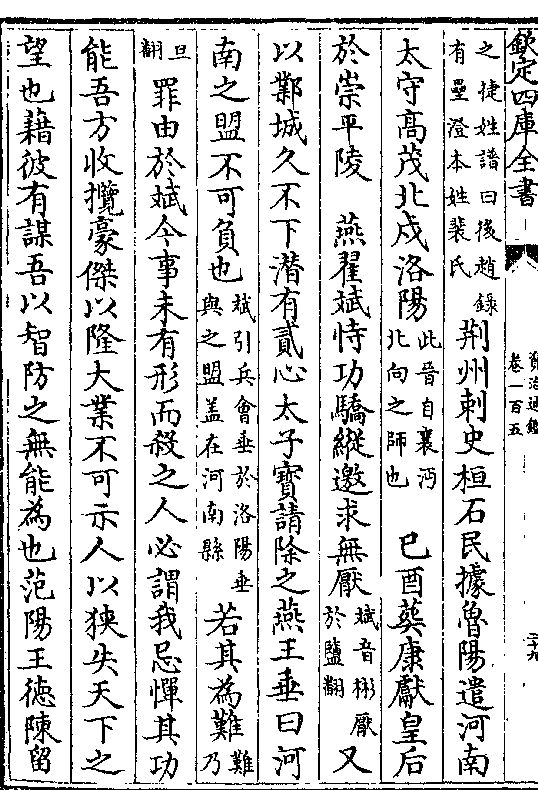 欽定四庫全書
資治通鑑
卷一百五
二十九
之捷姓譜曰後趙錄
有壘澄本姓裴氏
荆州刺史桓石民據魯陽遣河南
太守高茂北戍洛陽
此晉自襄沔
北向之師也
己酉葬康獻皇后
於崇平陵　燕翟斌恃功驕縱邀求無厭
斌音彬厭
於鹽翻
又
以鄴城久不下潜有貳心太子寶請除之燕王垂曰河
南之盟不可負也
斌引兵會垂於洛陽垂
與之盟盖在河南縣
若其為難
難
乃
旦
翻
罪由於斌今事未有形而殺之人必謂我忌憚其功
能吾方收攬豪傑以隆大業不可示人以狹失天下之
望也藉彼有謀吾以智防之無能為也范陽王德陳留